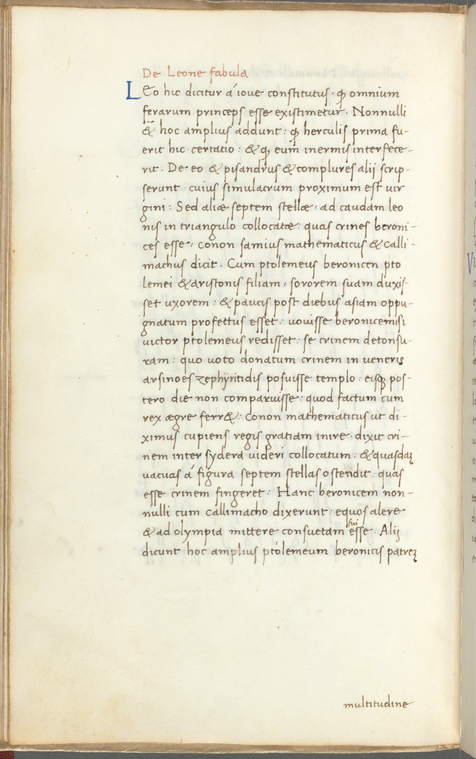 De Leone fabula
LEo hic dicitur á ioue constitutus. ꝙ omnium
ferarum princeps esse existimetur. Nonnulli
& hoc amplius addunt: ꝙ herculis prima fu-
erit hic certatio: & ꝙ eum inermis interfece-
rit. De eo & pisandrus & complures alij scrip-
serunt. cuius simulacrum proximum est uir
gini: Sed aliæ septem stellæ. ad caudam leo
nis in triangulo collocatæ. quas crines beroni-
ces esse. conon samius mathematicus & calli-
machus dicit. Cum ptolemeus beronicen pto
lemei & aristonis filiam. sororem suam duxis-
set uxorem: & paucis post diebus asiam oppu-
gnatum profettus esset: uouisse beronicem si
uictor ptolemeus redisset: se crinem detonsu-
ram: quo uoto donatum crinem in ueneris
arsinoes zephyritidis posuisse templo: eisq; pos-
tero die non comparuisse: quod factum cum
rex ægre ferr&: conon mathematicus ut di-
ximus cupiens regis gratiam inire. dixit cri-
nem inter sydera uideri collocatum: & quasdaȝ
uacuas á figura septem stellas ostendit. quas
esse crinem fingeret: Hanc beronicem non-
nulli cum callimacho dixerunt. equos alere
& ad olympia mittere consuetam fui esse. Alij
dicunt hoc amplius ptolemeum beronicis patreȝ
multitudine